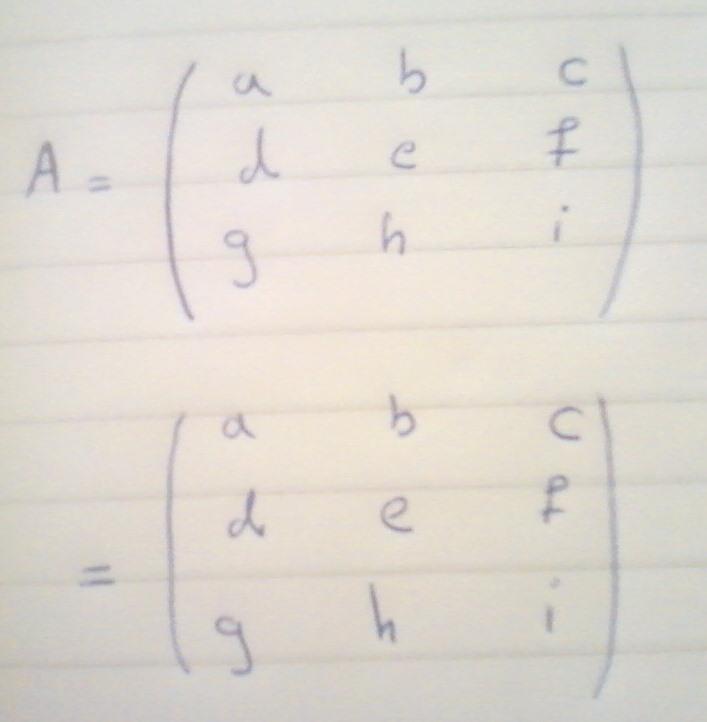 a b c
A = d e f
g h i
a b c
d e f
=
g h i